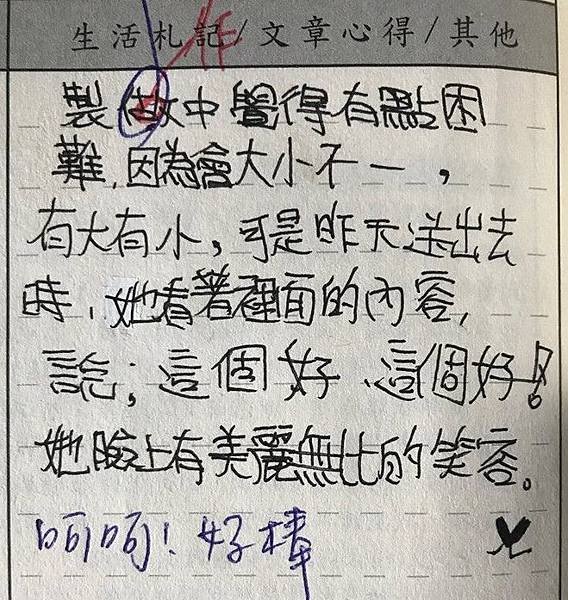 生活札記/文章心得/其他
作
製做中覺得有點困
難,因為會大小不一,
有大有小,可是昨天送出去
時、她看著裡面的內容,
說;這個好、這個好!
她臉上有美麗無比的笑容。
呵呵!好棒